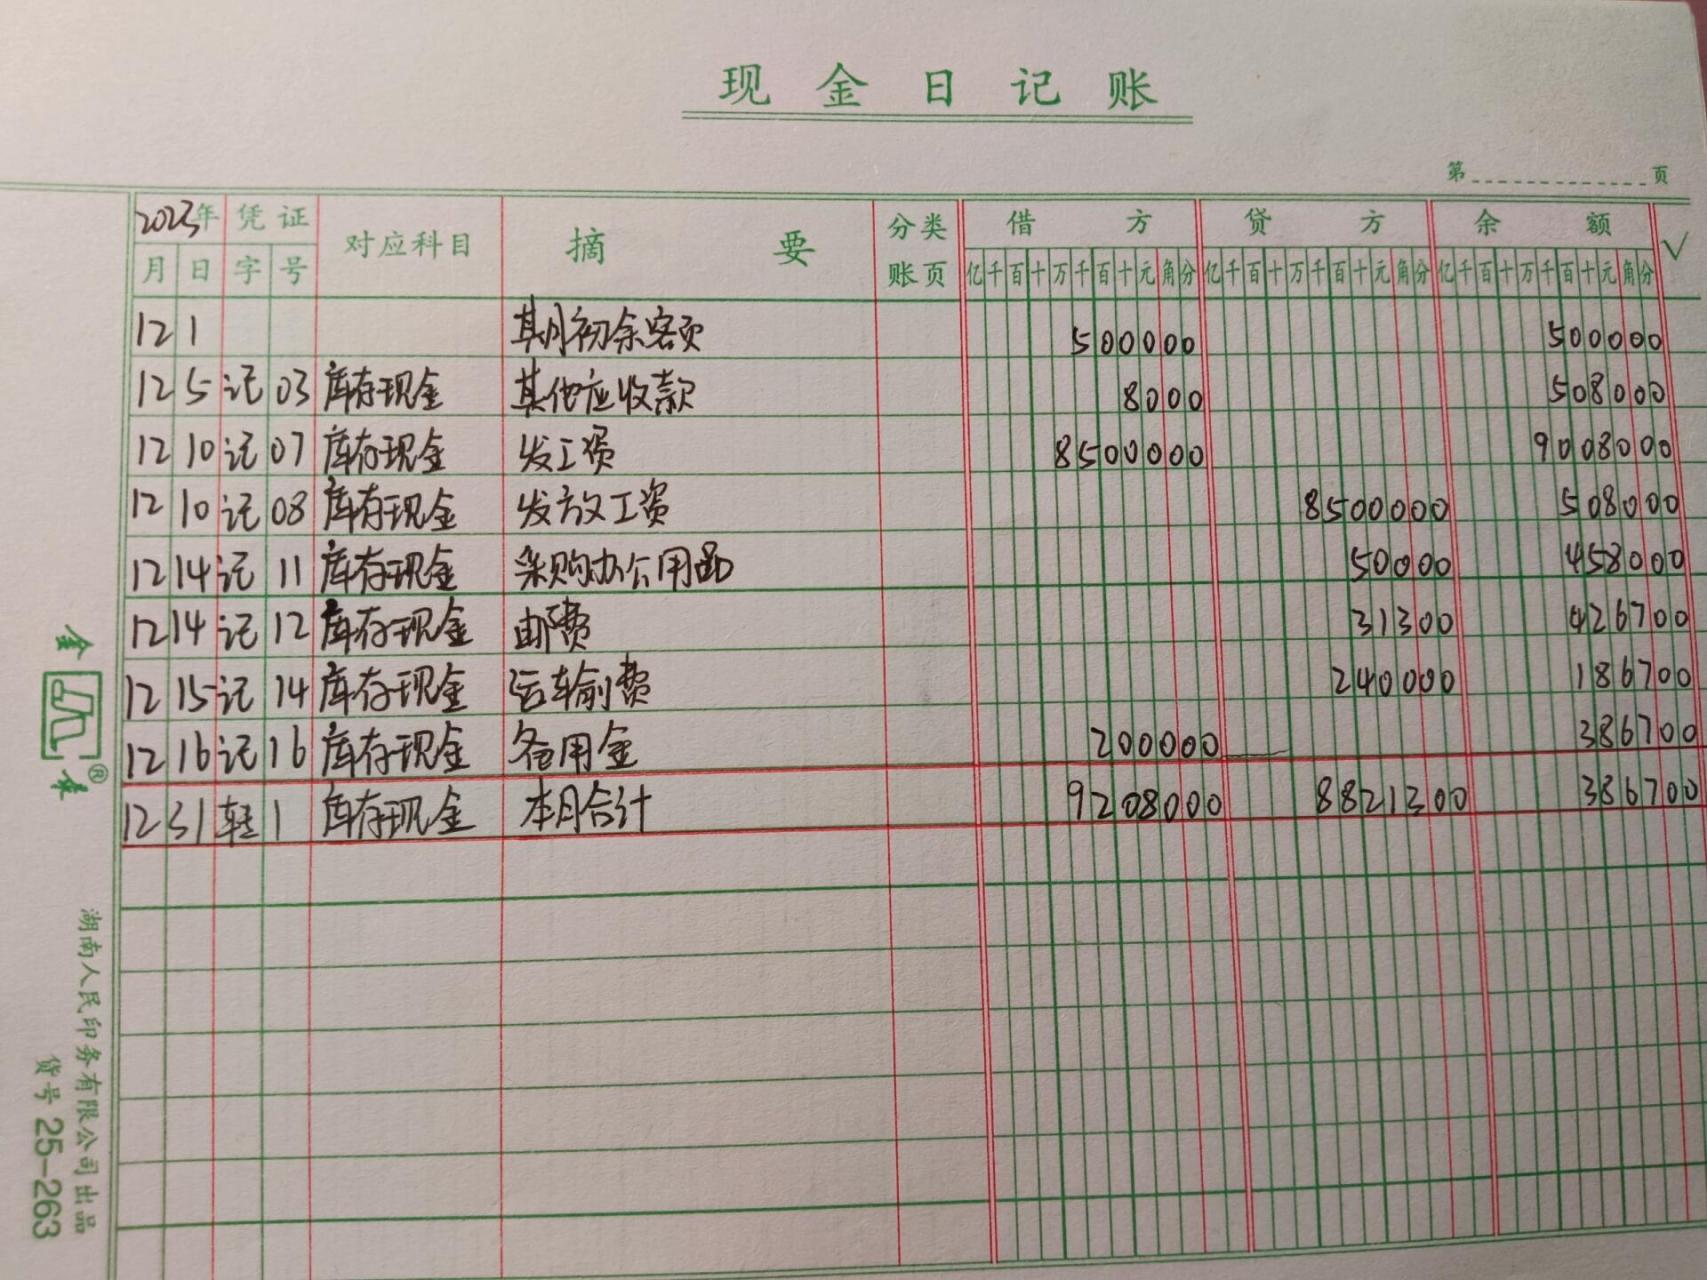 现金日记账
第 页
2023年 凭证 对应科目 摘要 分类账页 借方 贷方 余额 √
月 日 字 号 亿千百十万千百十元角分 亿千百十万千百十元角分 亿千百十万千百十元角分
12 1 期初余额 500000 500000
12 5 记 03 库存现金 其他应收款 8000 508000
12 10 记 07 库存现金 发工资 8500000 9008000
12 10 记 08 库存现金 发放工资 8500000 508000
12 14 记 11 库存现金 采购办公用品 50000 458000
12 14 记 12 库存现金 邮费 31300 426700
12 15 记 14 库存现金 运输费 240000 186700
12 16 记 16 库存现金 备用金 200000 386700
12 31 转 1 库存现金 本月合计 9208000 8821300 386700
金 ®
湖南人民印务有限公司出品
货号 25-263